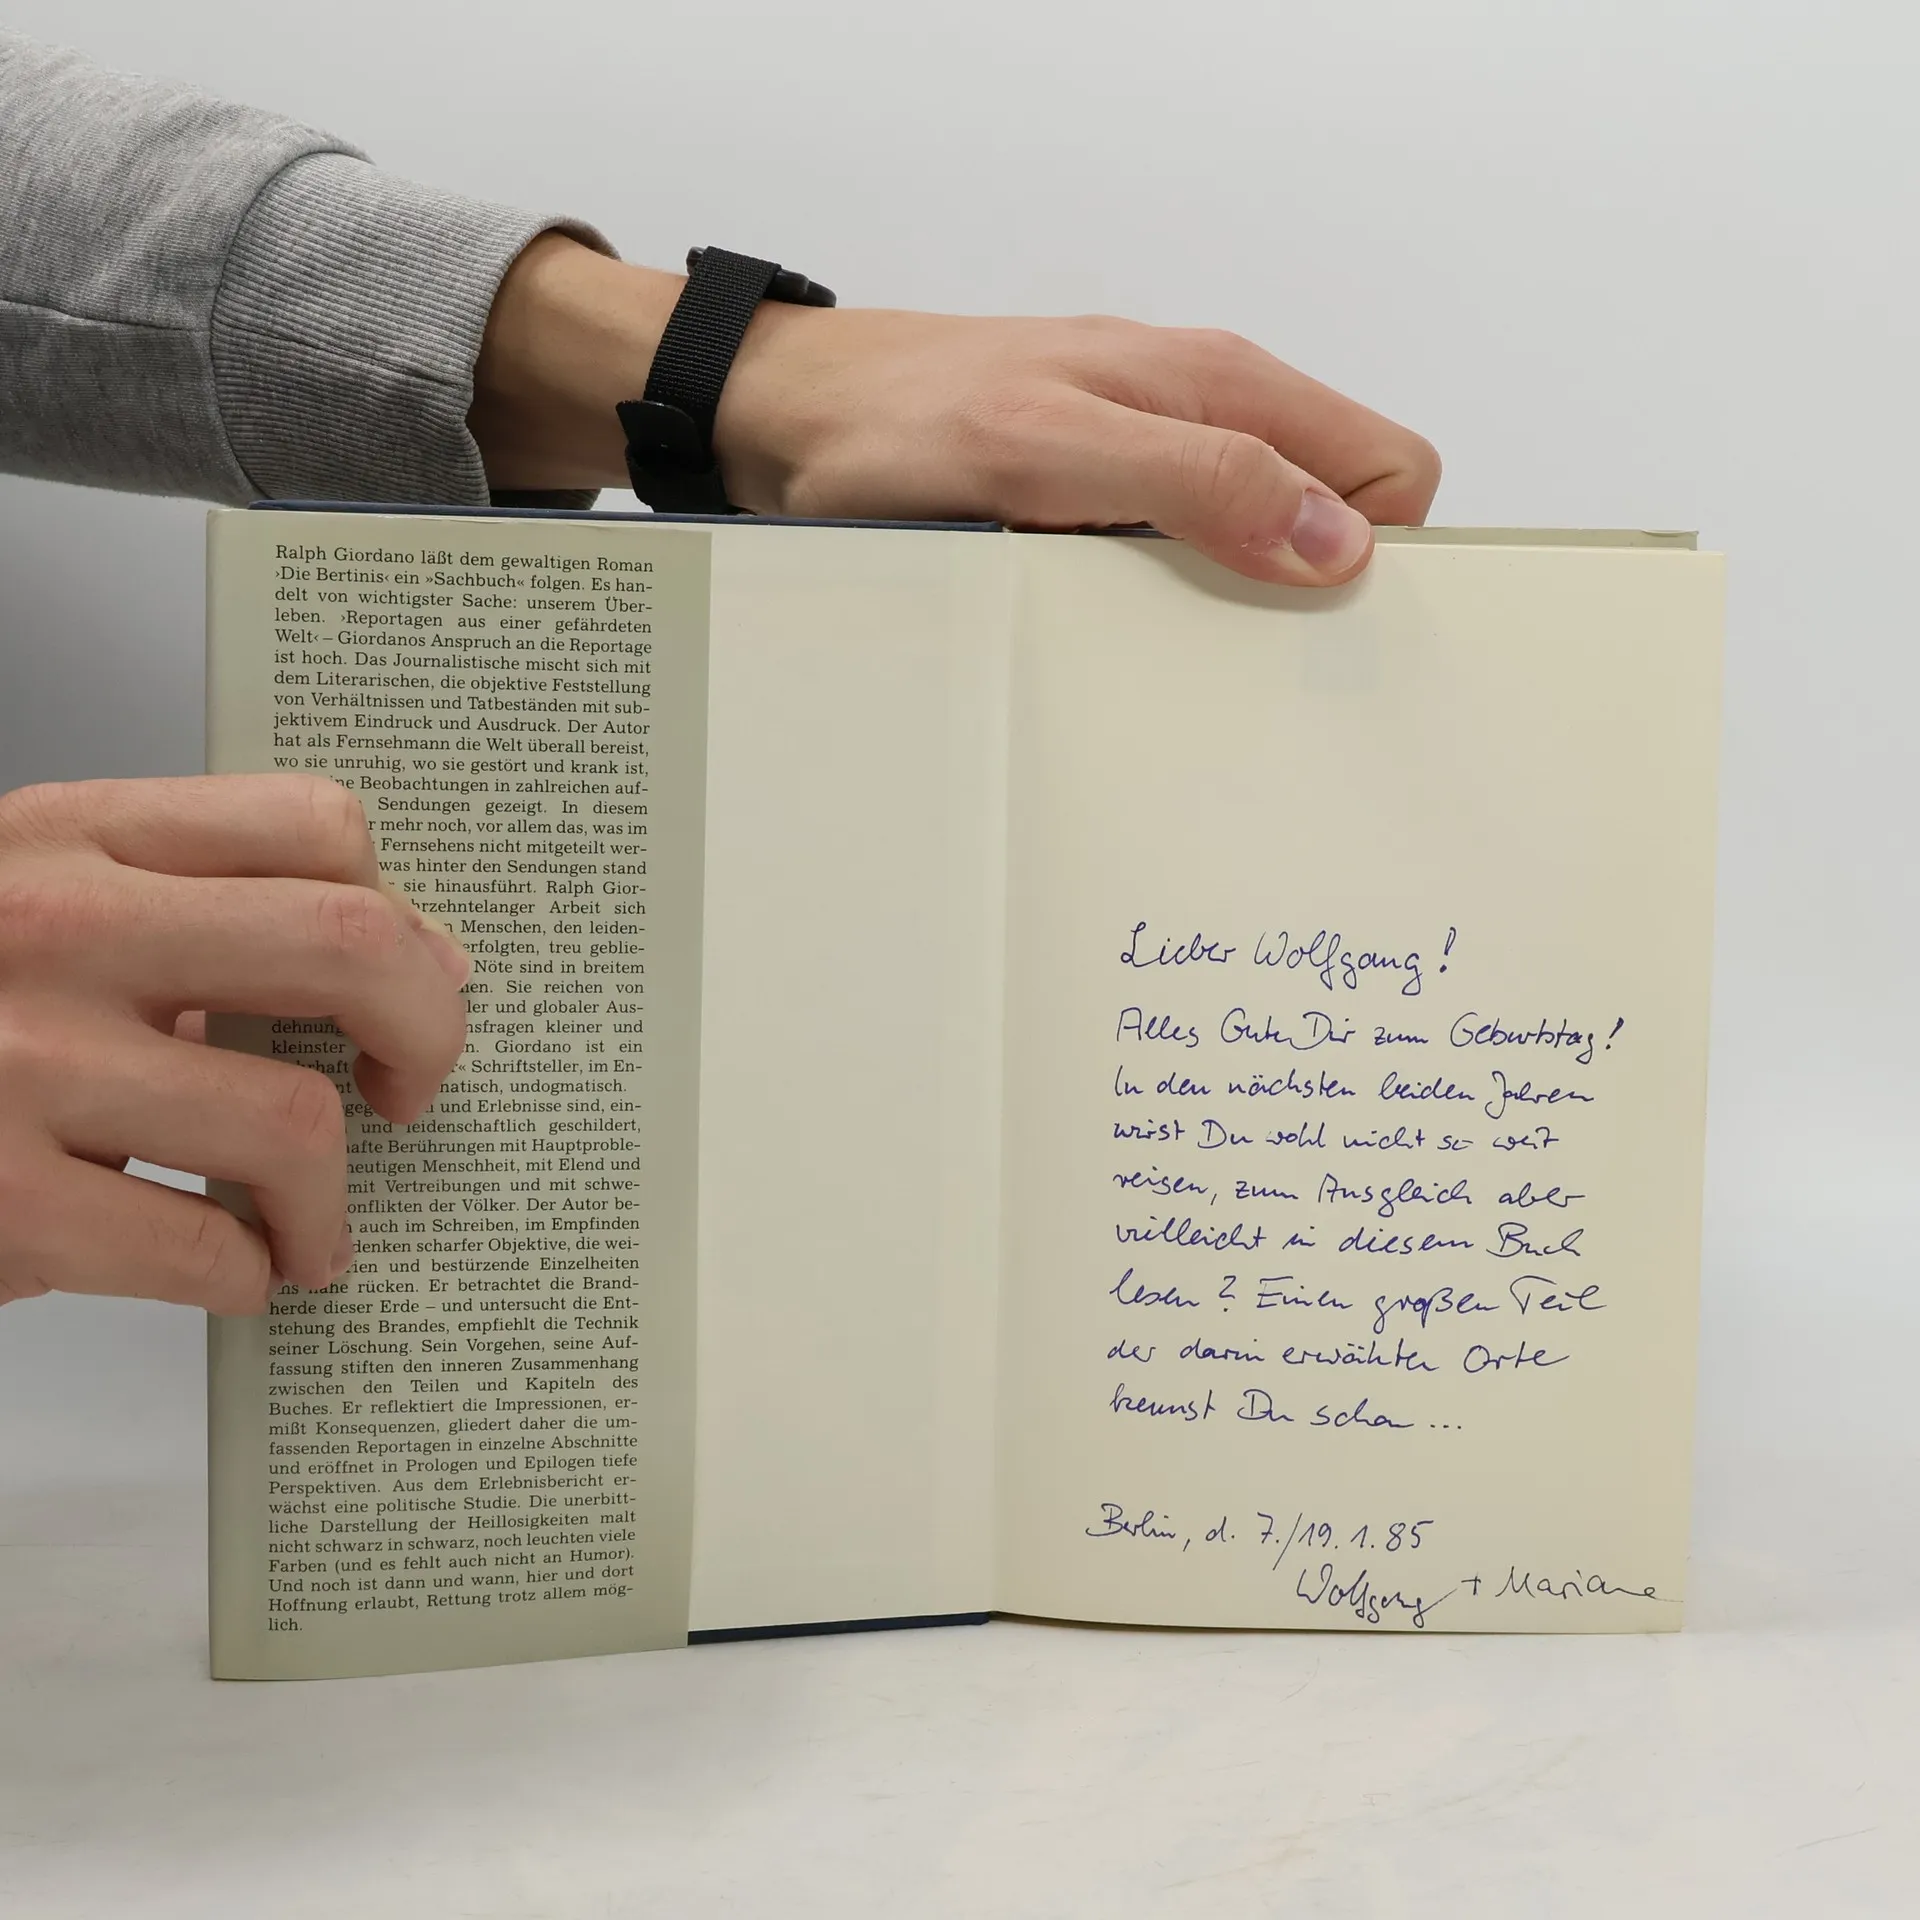 Ralph Giordano läßt dem gewaltigen Roman
›Die Bertinis‹ ein »Sachbuch« folgen. Es han-
delt von wichtigster Sache: unserem Über-
leben. ›Reportagen aus einer gefährdeten
Welt‹ – Giordanos Anspruch an die Reportage
ist hoch. Das Journalistische mischt sich mit
dem Literarischen, die objektive Feststellung
von Verhältnissen und Tatbeständen mit sub-
jektivem Eindruck und Ausdruck. Der Autor
hat als Fernsehmann die Welt überall bereist,
wo sie unruhig, wo sie gestört und krank ist,
Beobachtungen in zahlreichen auf-
Sendungen gezeigt. In diesem
mehr noch, vor allem das, was im
Fernsehens nicht mitgeteilt wer-
was hinter den Sendungen stand
sie hinausführt. Ralph Gior-
Arbeit sich
Menschen, den leiden-
treu geblie-
Nöte sind in breitem
Sie reichen von
und globaler Aus-
kleiner und
kleinster Giordano ist ein
Schriftsteller, im En-
undogmatisch.
und Erlebnisse sind, ein-
und leidenschaftlich geschildert,
Berührungen mit Hauptproble-
heutigen Menschheit, mit Elend und
mit Vertreibungen und mit schwe-
der Völker. Der Autor be-
auch im Schreiben, im Empfinden
scharfer Objektive, die wei-
und bestürzende Einzelheiten
nahe rücken. Er betrachtet die Brand-
herde dieser Erde – und untersucht die Ent-
stehung des Brandes, empfiehlt die Technik
seiner Löschung. Sein Vorgehen, seine Auf-
fassung stiften den inneren Zusammenhang
zwischen den Teilen und Kapiteln des
Buches. Er reflektiert die Impressionen, er-
mißt Konsequenzen, gliedert daher die um-
fassenden Reportagen in einzelne Abschnitte
und eröffnet in Prologen und Epilogen tiefe
Perspektiven. Aus dem Erlebnisbericht er-
wächst eine politische Studie. Die unerbitt-
liche Darstellung der Heillosigkeiten malt
nicht schwarz in schwarz, noch leuchten viele
Farben (und es fehlt auch nicht an Humor).
Und noch ist dann und wann, hier und dort
Hoffnung erlaubt, Rettung trotz allem mög-
lich.
Lieber Wolfgang!
Alles Gute Dir zum Geburtstag!
In den nächsten beiden Jahren
wirst Du wohl nicht so weit
reisen, zum Ausgleich aber
vielleicht in diesem Buch
lesen? Einen großen Teil
der darin erwähten Orte
kennst Du schon ...
Berlin, d. 7./19.1.85
Wolfgang + Mariane